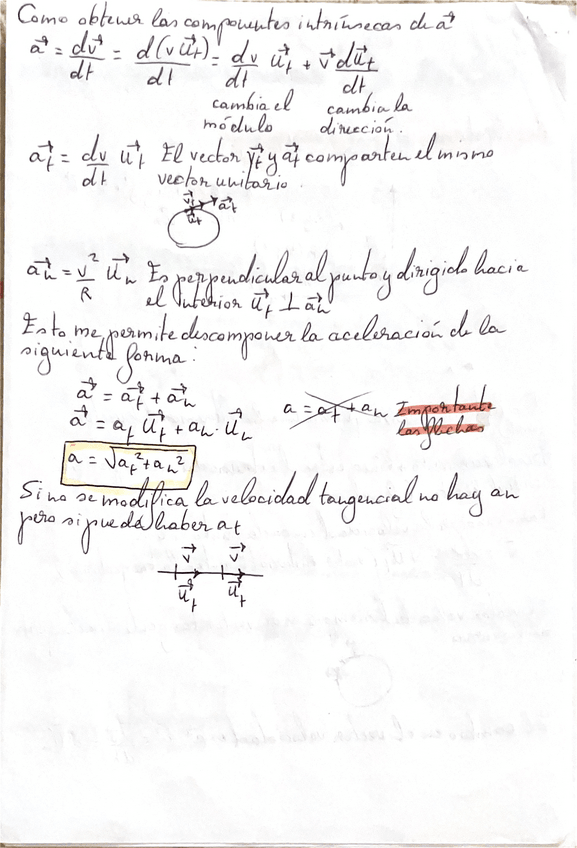 Como obtener las componentes intrínsecas de a⃗
a⃗ = dv⃗/dt = d(v u⃗t)/dt = dv/dt u⃗t + v⃗ du⃗t/dt
cambia el módulo cambia la dirección.
a⃗t = dv/dt u⃗t El vector v⃗t y a⃗t comparten el mismo
vector unitario.
v⃗t a⃗t
u⃗t
a⃗n = v²/R u⃗n Es perpendicular al punto y dirigido hacia
el interior u⃗t ⊥ a⃗n
Esto me permite descomponer la aceleración de la
siguiente forma:
a⃗ = a⃗t + a⃗n
a = at + an Importante
a⃗ = at u⃗t + an · u⃗n
las flechas
a = √at² + an²
Si no se modifica la velocidad tangencial no hay an
pero si puede haber at
v⃗ v⃗
u⃗t u⃗t